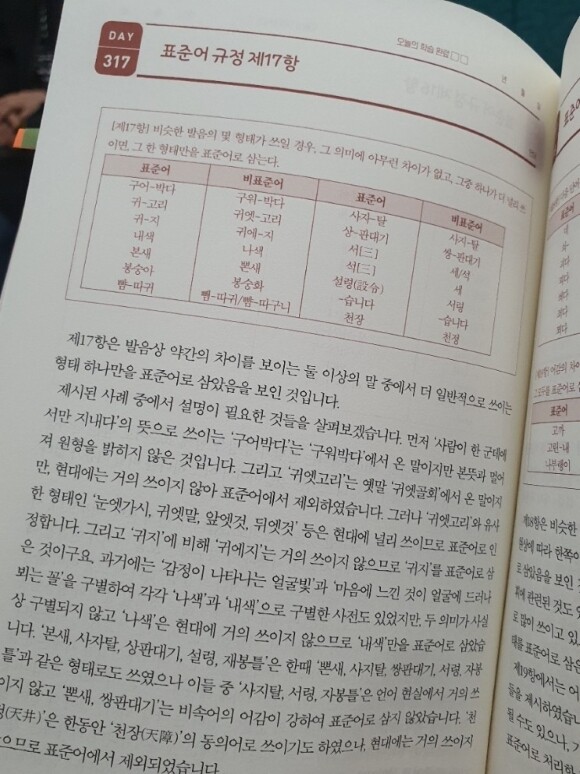 DAY
317
표준어 규정 제17항
오늘의 학습 완료 □□
년 월 일
[제17항] 비슷한 발음의 몇 형태가 쓰일 경우, 그 의미에 아무런 차이가 없고, 그중 하나가 더 널리 쓰
이면, 그 한 형태만을 표준어로 삼는다.
표준어 비표준어 표준어 비표준어
구어-박다 구워-박다 사자-탈 사지-탈
귀-고리 귀엣-고리 상-판대기 쌍-판대기
귀-지 귀에-지 서[三] 세/석
내색 나색 석[三] 세
본새 뽄새 설령(設令) 서령
봉숭아 봉숭화 -습니다 -읍니다
뺨-따귀 뺌-따귀/뺨-따구니 천장 천정
제17항은 발음상 약간의 차이를 보이는 둘 이상의 말 중에서 더 일반적으로 쓰이는
형태 하나만을 표준어로 삼았음을 보인 것입니다.
제시된 사례 중에서 설명이 필요한 것들을 살펴보겠습니다. 먼저 '사람이 한 군데에
서만 지내다'의 뜻으로 쓰이는 '구어박다'는 '구워박다'에서 온 말이지만 본뜻과 멀어
져 원형을 밝히지 않은 것입니다. 그리고 '귀엣고리'는 옛말 '귀엿골회'에서 온 말이지
만, 현대에는 거의 쓰이지 않아 표준어에서 제외하였습니다. 그러나 '귀엣고리'와 유사
한 형태인 '눈엣가시, 귀엣말, 앞엣것, 뒤엣것' 등은 현대에 널리 쓰이므로 표준어로 인
정합니다. 그리고 '귀지'에 비해 '귀에지'는 거의 쓰이지 않으므로 '귀지'를 표준어로 삼
은 것이구요, 과거에는 '감정이 나타나는 얼굴빛'과 '마음에 느낀 것이 얼굴에 드러나
뵈는 꼴'을 구별하여 각각 '나색'과 '내색'으로 구별한 사전도 있었지만, 두 의미가 사실
상 구별되지 않고 '나색'은 현대에 거의 쓰이지 않으므로 '내색'만을 표준어로 삼았습
니다. '본새, 사자탈, 상판대기, 설령, 재봉틀'은 한때 '뽄새, 사지탈, 쌍판대기, 서령, 자봉
틀'과 같은 형태로도 쓰였으나 이들 중 '사지탈, 서령, 자봉틀'은 언어 현실에서 거의 쓰
이지 않고 '뽄새, 쌍판대기'는 비속어의 어감이 강하여 표준어로 삼지 않았습니다. '천
정(天井)'은 한동안 '천장(天障)'의 동의어로 쓰이기도 하였으나, 현대에는 거의 쓰이지
으므로 표준어에서 제외되었습니다.
표준어
고까
고린-내
나부랭이
제18항은 비슷한
제19항에서는 어
들을 제시하였습니